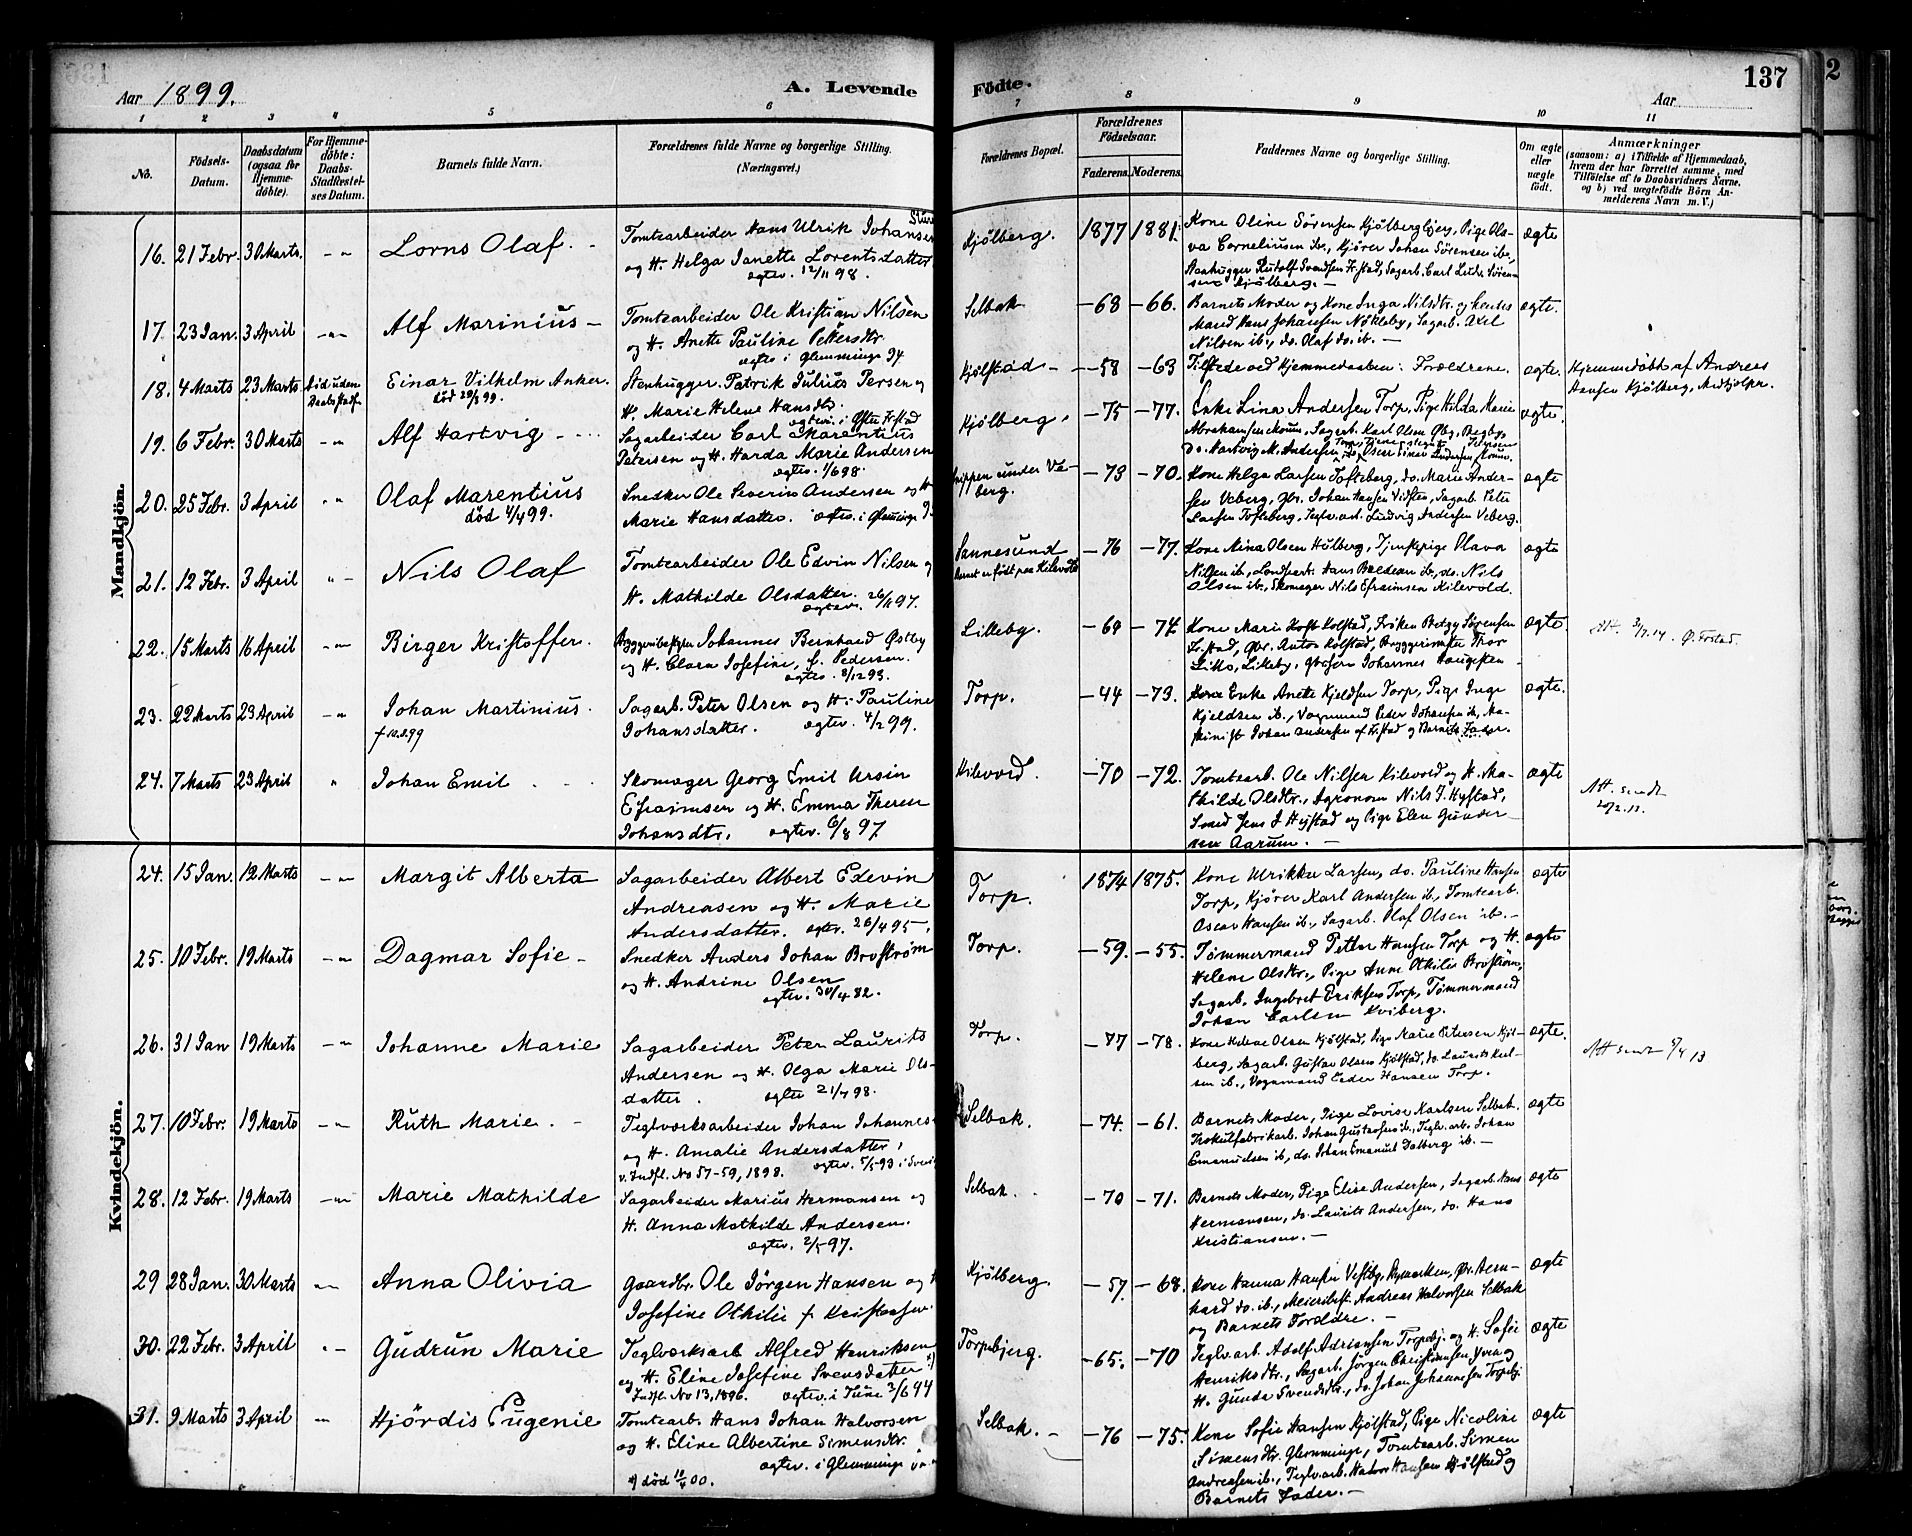 Aar 1899. A. Levende Födte. Aar 137
1 2 3 4 5 6 7 8 9 10 11
No. Födsels-Datum. Daabsdatum (ogsaa for Hjemmedöbte). For Hjemmedöbte: Daabs-Stadfestelses Datum. Barnets fulde Navn. Forældrenes fulde Navne og borgerlige Stilling. (Næringsvei.) Forældrenes Bopæl. Forældrenes Födselsaar. Faderens. Moderens. Faddernes Navne og borgerlige Stilling. Om ægte eller uægte födt. Anmærkninger (saasom: a) i Tilfælde af Hjemmedaab, hvem der har forrettet samme, med Tilföielse af to Daabsvidners Navne, og b) ved uægtefödte Börn Anmelderens Navn m. V.)
Mandkjön.
16. 21 Febr. 30 Marts. Lorns Olaf. Tomtearbeider Hans Ulrik Johansen Kjølberg. 1877 1881. Kone Oline Sørensen Kjølbergbjerg, Pige Ol- ægte
og H. Helga Janette Lorentsdatter va Corneliusen ib., Kjører Johan Sørensen ib.,
ægtev. 12/11 98. Stenhugger Rudolf Svendsen Fr.stad, Sagarb. Carl Ludv. Søren-
sen Kjølberg.
17. 23 Jan. 3 April Alf Marinius Tomtearbeider Ole Kristian Nilsen Selbak -68 -66. Barnets Moder og Kone Inga Nilsdtr. og hendes ægte.
og H. Anette Pauline Pettersdtr. Mand Hans Johansen Nøkleby, Sagarb. Axel
ægtev. i Glemminge 94 Nilsen ib., do. Olaf do. ib.
18. 4 Marts 23 Marts Einar Vilhelm Anker. Stenhugger Patrik Julius Persen og Kjølstad -58 -63 Tilstede ved Hjemmedaaben: Forældrene. ægte. Hjemmedøbt af Andreas
død 29/3 99. H. Marie Helene Hansdtr. Hansen Kjølberg, Medhjelper.
19. 6 Febr. 30 Marts Alf Hartvig Sagarbeider Carl Marentius Kjølberg. -75 -77. Enke Lina Andersen Torp, Pige Hilda Marie ægte.
Petersen og H. Harda Marie Andersen
ægtev. 1/6 98.
20. 25 Febr. 3 April Olaf Marentius Snedker Ole Severin Andersen og H. -73 -70. Kone Helga Larsen Tofteberg, do. Marie Ander- ægte
død 4/4 99. Marie Hansdatter. ægtev. i Glemminge sen Veberg, Gbr. Johan Hansen Vidsten, Sagarb. Peter
Larsen Tofteberg, Teglv.arb. Ludvig Andersen Veberg.
21. 12 Febr. 3 April Nils Olaf Tomtearbeider Ole Edvin Nilsen og Sannesund -76 -77. Kone Nina Olsen Hulberg, Tjenstpige Olava ægte
H. Mathilde Olsdatter. Barnet er født paa Kilevold Nilsen ib., Landarb. Hans Baldean ib., do. Nils
ægtev. 26/11 97. Olsen ib., Skomager Nils Efraimsen Kilevold.
22. 15 Marts 16 April Birger Kristoffer. Bryggeribestyrer Johannes Bernhard Østby Lilleby. -69 -74. Kone Marie Hoff Kolstad, Frøken Betzy Sørensen ægte. 3/7.14. Ø. Fr.stad.
og H. Clara Josefine, f. Pedersen. Fr.stad, Gbr. Anton Kolstad, Bryggerimester Thor
ægtev. 8/12 93.
23. 22 Marts 23 April Johan Martinius. Sagarb. Peter Olsen og H. Pauline Torp. -44 -73. Enke Anette Kjeldsen Torp, Pige Inga ægte.
Johansdatter. ægtev. 4/2 99. Kjeldsen ib., Vognmand Peder Johansen ib., Ma-
skinist Johan Andersen af Fr.stad og Barnets Fader.
24. 7 Marts 23 April Johan Emil Skomager Georg Emil Ursin Kilevold. -70 -72. Tomtearb. Ole Nilsen Kilevold og H. Ma- ægte
Efraimsen og H. Emma Therese thilde Olsdtr., Agronom Nils J. Hystad, Att. sendt
Johansdtr. ægtev. 6/8 97 Smed Jens J. Hystad og Pige Elen Gunder-
sen Aarum.
Kvindekjön.
24. 15 Jan. 12 Marts Margit Alberta Sagarbeider Albert Edevin Torp. 1874 1875. Kone Ulrikke Larsen, do. Pauline Hansen ægte
Andreasen og H. Marie Torp, Kjører Karl Andersen ib., Tomtearb.
Andersdatter. ægtev. 26/4 95. Oscar Hansen ib., Sagarb. Olaf Olsen ib.
25. 10 Febr. 19 Marts Dagmar Sofie Snedker Anders Johan Brostrøm Torp. -59. -55. Tømmermand Petter Hansen Torp og H. ægte
og H. Andrine Olsen Helene Olsdtr., Pige Anna Othilie Brostrøm,
ægtev. 30/4 82. Sagarb. Ingebret Eriksen Torp, Tømmermand
Johan Carlsen Kviberg.
26. 31 Jan 19 Marts Johanne Marie Sagarbeider Peter Laurits Torp. -77 -78. Kone Helene Olsen Kjølstad, Pige Marie Petersen Kjøl- ægte.
Andersen og H. Olga Marie Ols- berg, Sagarb. Gustav Olsen Kjølstad, do. Laurits Karl- Att sendt 5/4 13
datter. ægtev 21/4 98. sen ib., Vognmand Peder Hansen Torp.
27. 10 Febr. 19 Marts Ruth Marie. Teglverksarbeider Johan Johannes- Selbak. -74. -61. Barnets Moder, Pige Lovise Karlsen Selbak. ægte
og H. Amalie Andersdatter Johan Gustavsen ib., Teglv.arb. Johan
v. Indfl. No 57-59, 1898. ægtev. 5/5 93 i Emanuelsen ib., do. Johan Emanuel Dalberg ib.
28. 12 Febr. 19 Marts Marie Mathilde Sagarbeider Marius Hermansen og Selbak. -70 -71. Barnets Moder, Pige Elise Andersen, Sagarb. Hans ægte
H. Anna Mathilde Andersen. Hermansen, do. Laurits Andersen, do. Hans
ægtev. 2/5 97. Kristiansen.
29 28 Jan. 30 Marts Anna Olivia Gaardbr. Ole Jørgen Hansen og H Kjølberg. -57. -68. Kone Hanna Hansen Vestby, Rygmarken, Gbr. Bern- ægte
Josefine Othilie f. Kristensen hard do. ib., Meieribest. Andreas Halvorsen Selbak
og Barnets Forældre.
30. 22 Febr. 3 April Gudrun Marie Teglverksarb Alfred Henriksen Torpebjerg. -65. -70 Teglv.arb. Adolf Adriansen Torpebj. og H. Sofie ægte
og H. Eline Josefine Svensdatter Henriksdtr., Sagarb. Jørgen Christiansen Yven og
Indfl. No 13, 1896. ægtev. i Tune 3/6 94 H. Gunda Svendsdtr., do. Johan Johannesen Torpebj.
31. 9 Marts 3 April Hjördis Eugenie Tomtearb. Hans Johan Halvorsen Selbak. -76 -75. Kone Sofie Hansen Kjølstad, Pige Nicoline ægte
og H. Eline Albertine Simensdtr. Simensdtr. Glemminge, Tomtearb. Simen
ægtev. i Glemminge Andreasen ib., Teglv.arb. Halvor Hansen Kjølstad og
død 11/4 00. Barnets Fader.